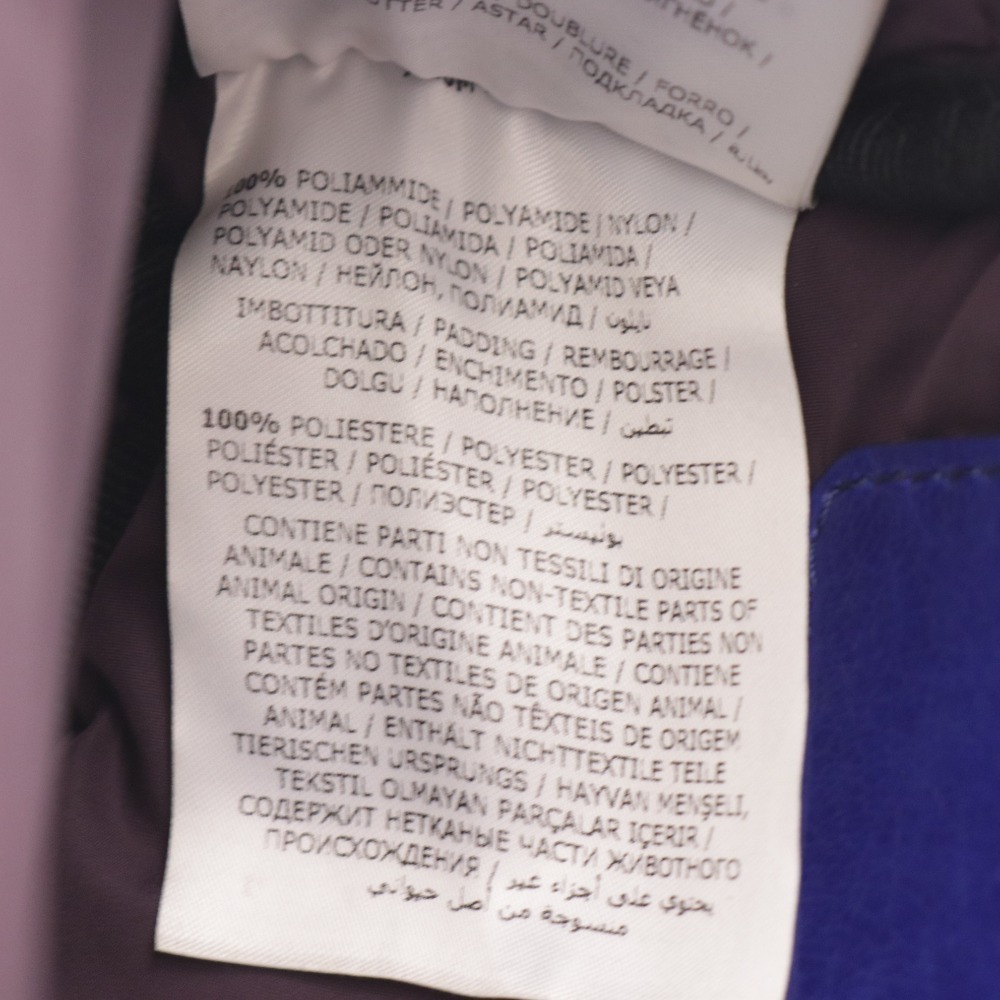 ЯГНЕНОК /
DOUBLURE / FORRO /
/ ASTAR / ПОДКЛАДКА /
100% POLIAMMIDE / POLYAMIDE / NYLON /
POLYAMIDE / POLIAMIDA / POLIAMIDA /
POLYAMID ODER NYLON / POLYAMID VEYA
NAYLON / НЕЙЛОН, ПОЛИАМИД / نايلون
IMBOTTITURA / PADDING / REMBOURRAGE /
ACOLCHADO / ENCHIMENTO / POLSTER /
DOLGU / НАПОЛНЕНИЕ / تبطين
100% POLIESTERE / POLYESTER / POLYESTER /
POLIÉSTER / POLIÉSTER / POLYESTER /
POLYESTER / ПОЛИЭСТЕР / بوليستر
CONTIENE PARTI NON TESSILI DI ORIGINE
ANIMALE / CONTAINS NON-TEXTILE PARTS OF
ANIMAL ORIGIN / CONTIENT DES PARTIES NON
TEXTILES D'ORIGINE ANIMALE / CONTIENE
PARTES NO TEXTILES DE ORIGEN ANIMAL /
CONTÉM PARTES NÃO TÊXTEIS DE ORIGEM
ANIMAL / ENTHÄLT NICHTTEXTILE TEILE
TIERISCHEN URSPRUNGS / HAYVAN MENŞELI,
TEKSTIL OLMAYAN PARÇALAR IÇERIR /
СОДЕРЖИТ НЕТКАНЫЕ ЧАСТИ ЖИВОТНОГО
ПРОИСХОЖДЕНИЯ / يحتوي على أجزاء غير
منسوجة من أصل حيواني